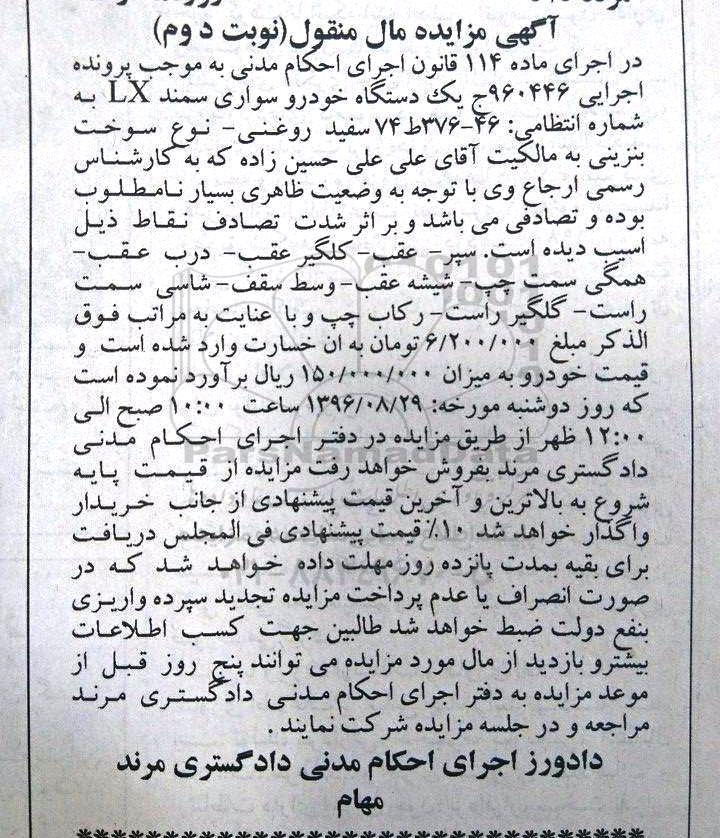 آگهی مزایده مال منقول(نوبت دوم)
در اجرای ماده ۱۱۴ قانون اجرای احکام مدنی به موجب پرونده
اجرایی ۹۶۰۴۴۶ج یک دستگاه خودرو سواری سمند LX به
شماره انتظامی: ۴۶-۳۷۶ط۷۴ سفید روغنی- نوع سوخت
بنزینی به مالکیت آقای علی علی حسین زاده که به کارشناس
رسمی ارجاع وی با توجه به وضعیت ظاهری بسیار نامطلوب
بوده و تصادفی می باشد و بر اثر شدت تصادف نقاط ذیل
اسیب دیده است. سپر- عقب- کلگیر عقب- درب عقب-
همگی سمت چپ- شیشه عقب- وسط سقف- شاسی سمت
راست- گلگیر راست- رکاب چپ و با عنایت به مراتب فوق
الذکر مبلغ ۶/۲۰۰/۰۰۰ تومان به ان خسارت وارد شده است و
قیمت خودرو به میزان ۱۵۰/۰۰۰/۰۰۰ ریال برآورد نموده است
که روز دوشنبه مورخه: ۱۳۹۶/۰۸/۲۹ ساعت ۱۰:۰۰ صبح الی
۱۲:۰۰ ظهر از طریق مزایده در دفتر اجرای احکام مدنی
دادگستری مرند بفروش خواهد رفت مزایده از قیمت پایه
شروع به بالاترین و آخرین قیمت پیشنهادی از جانب خریدار
واگذار خواهد شد ۱۰٪ قیمت پیشنهادی فی المجلس دریافت
برای بقیه بمدت پانزده روز مهلت داده خواهد شد که در
صورت انصراف یا عدم پرداخت مزایده تجدید سپرده واریزی
بنفع دولت ضبط خواهد شد طالبین جهت کسب اطلاعات
بیشترو بازدید از مال مورد مزایده می توانند پنج روز قبل از
موعد مزایده به دفتر اجرای احکام مدنی دادگستری مرند
مراجعه و در جلسه مزایده شرکت نمایند .
دادورز اجرای احکام مدنی دادگستری مرند
مهام
ParsNamadData